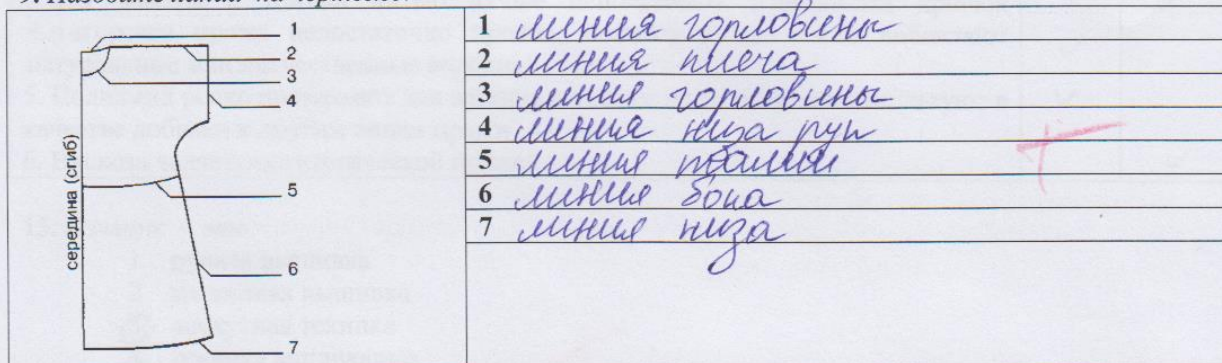 9. Назовите линии на чертеже.
середина (сгиб)
1
2
3
4
5
6
7
1 линия горловины
2 линия плеча
3 линия горловины
4 линия низа рук
5 линия талии
6 линия бока
7 линия низа